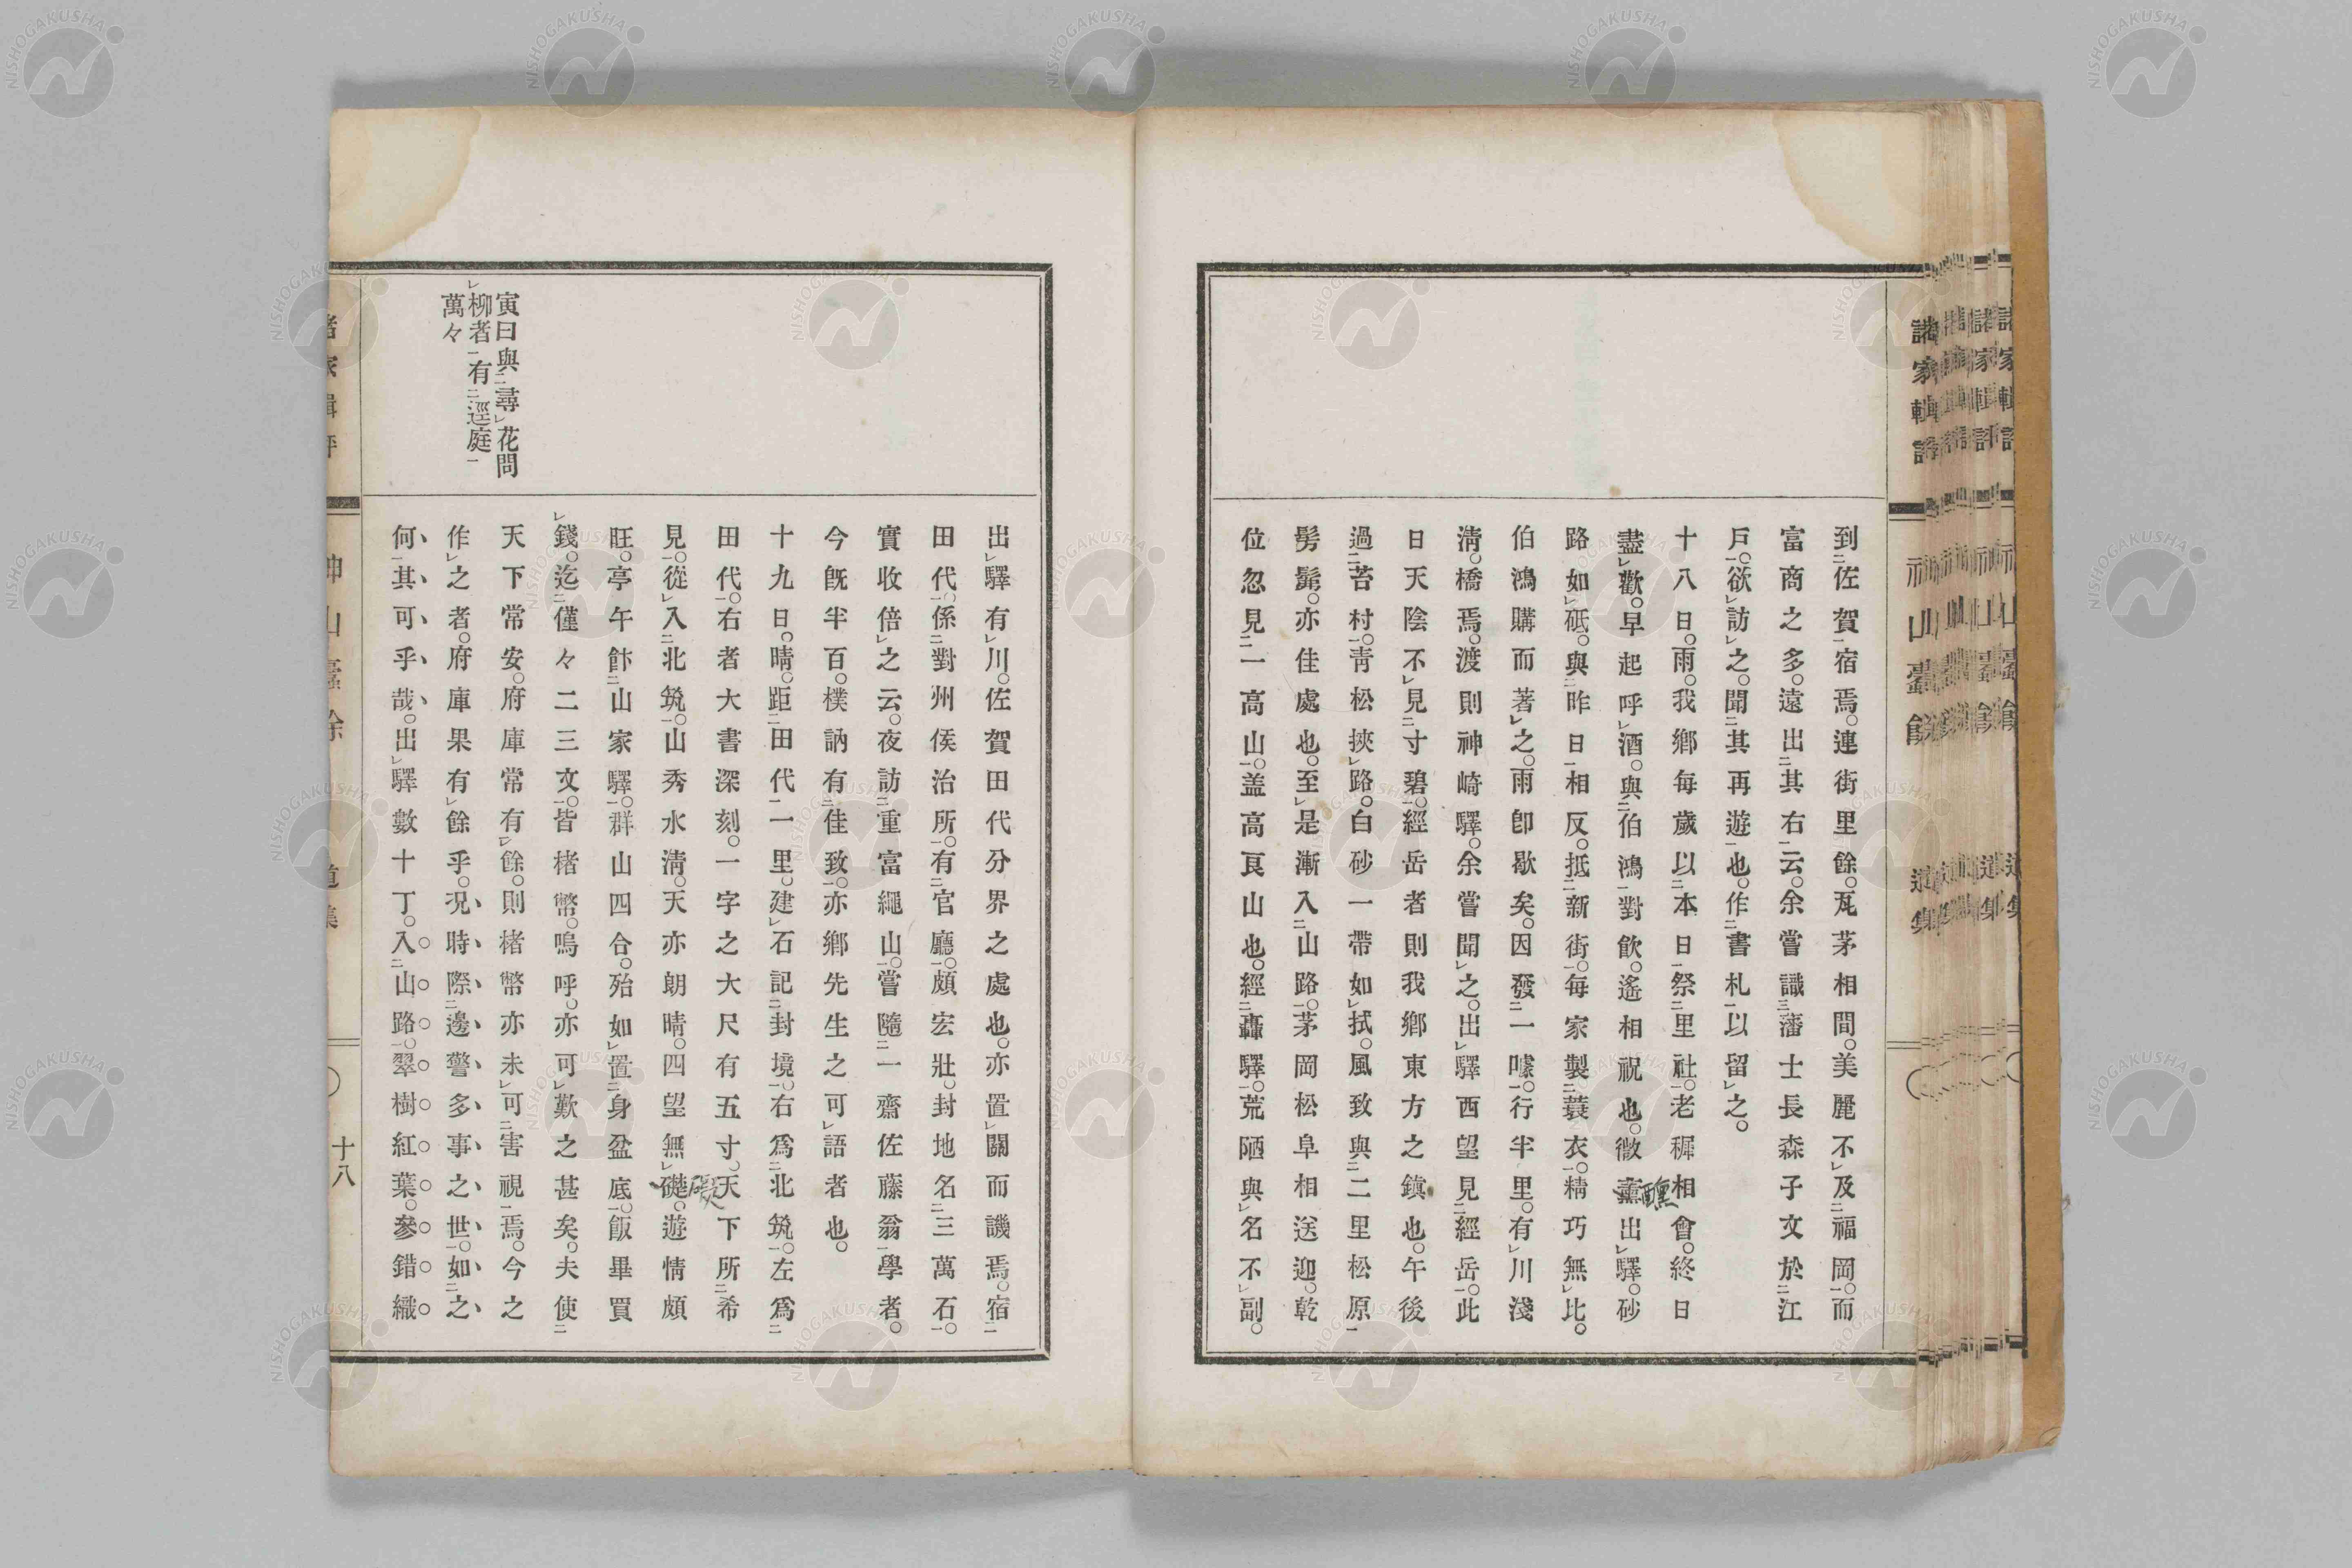 到佐賀宿焉。連街里餘。瓦茅相間。美麗不及福岡。而
富商之多。遠出其右云。余嘗識藩士長森子文於江
戸。欲訪之。聞其再遊也。作書札以留之。
十八日。雨。我鄉每歲以本日祭里社。老穉相會。終日
盡歡。早起呼酒。與伯鴻對飲。遙相祝也。微薰出驛。砂
醺
路如砥。與昨日相反。抵新街。每家製蓑衣。精巧無比。
伯鴻購而著之。雨卽歇矣。因發一噱。行半里。有川淺
淸。橋焉。渡則神崎驛。余嘗聞之。出驛西望見經岳。此
日天陰不見寸碧。經岳者則我鄉東方之鎭也。午後
過苔村。靑松挾路。白砂一帶如拭。風致與二里松原
髣髴。亦佳處也。至是漸入山路。茅岡松阜相送迎。乾
位忽見一高山。蓋高良山也。經轟驛。荒陋與名不副。
出驛有川。佐賀田代分界之處也。亦置關而譏焉。宿
田代。係對州侯治所。有官廳。頗宏壯。封地名三萬石。
實收倍之云。夜訪重富繩山。嘗隨一齋佐藤翁學者。
今旣半百。樸訥有佳致。亦鄉先生之可語者也。
十九日。晴。距田代一里。建石記封境。右爲北筑。左爲
田代。右者大書深刻。一字之大尺有五寸。天下所希
見。從入北筑。山秀水淸。天亦朗晴。四望無礙。遊情頗
旺。亭午飰山家驛。群山四合。殆如置身盆底。飯畢買
錢。迄僅々二三文。皆楮幣。嗚呼。亦可歎之甚矣。夫使
天下常安。府庫常有餘。則楮幣亦未可害視焉。今之
作之者。府庫果有餘乎。况時際邊警多事之世。如之
何其可乎哉。出驛數十丁。入山路。翠樹紅葉。參錯織
寅曰與尋花問
柳者有逕庭
萬々
諸家輯評
神山臺餘
遺集
十八